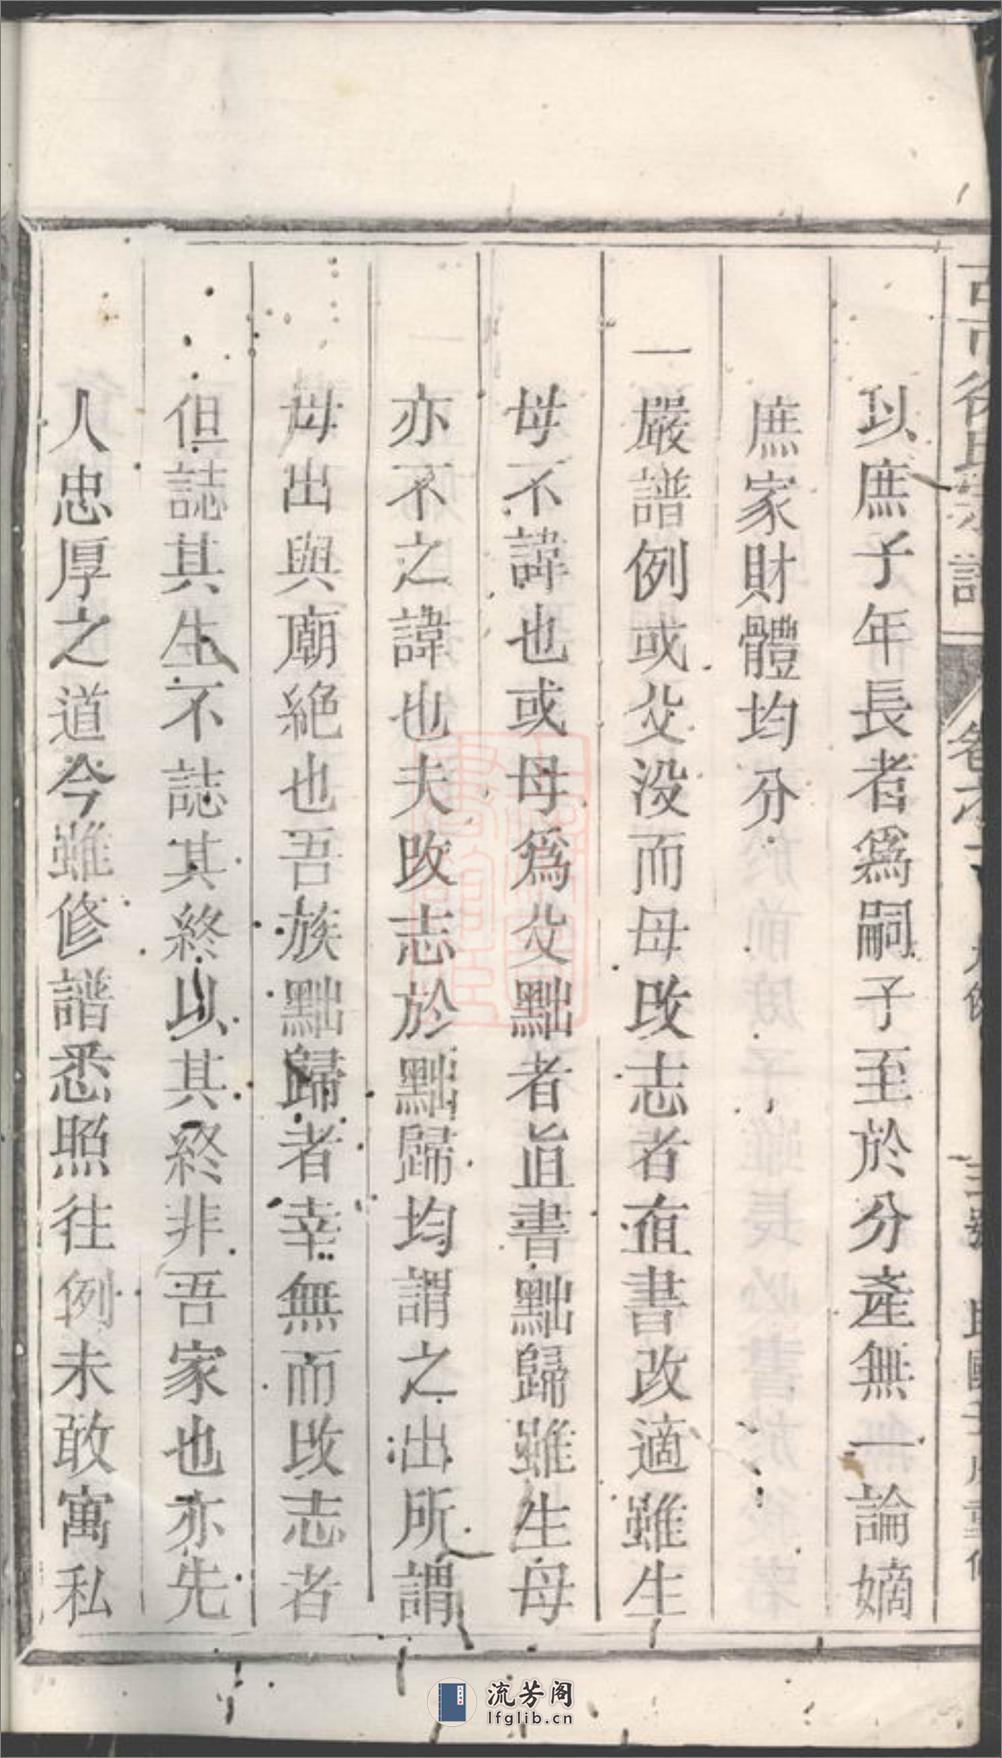 以庶子年長者爲嗣子至於分產無一論嫡
庶家財體均分
一嚴譜例或父没而母改志者直書改適雖生
母不諱也或母爲父黜者直書黜歸雖生母
亦不之諱也夫改志於黜歸均謂之出所謂
母出與廟絶也吾族黜歸者幸無而改志者
但誌其生不誌其終以其終非吾家也亦先
人忠厚之道今雖修譜悉照往例未敢寓私
流芳阁
lfglib.cn